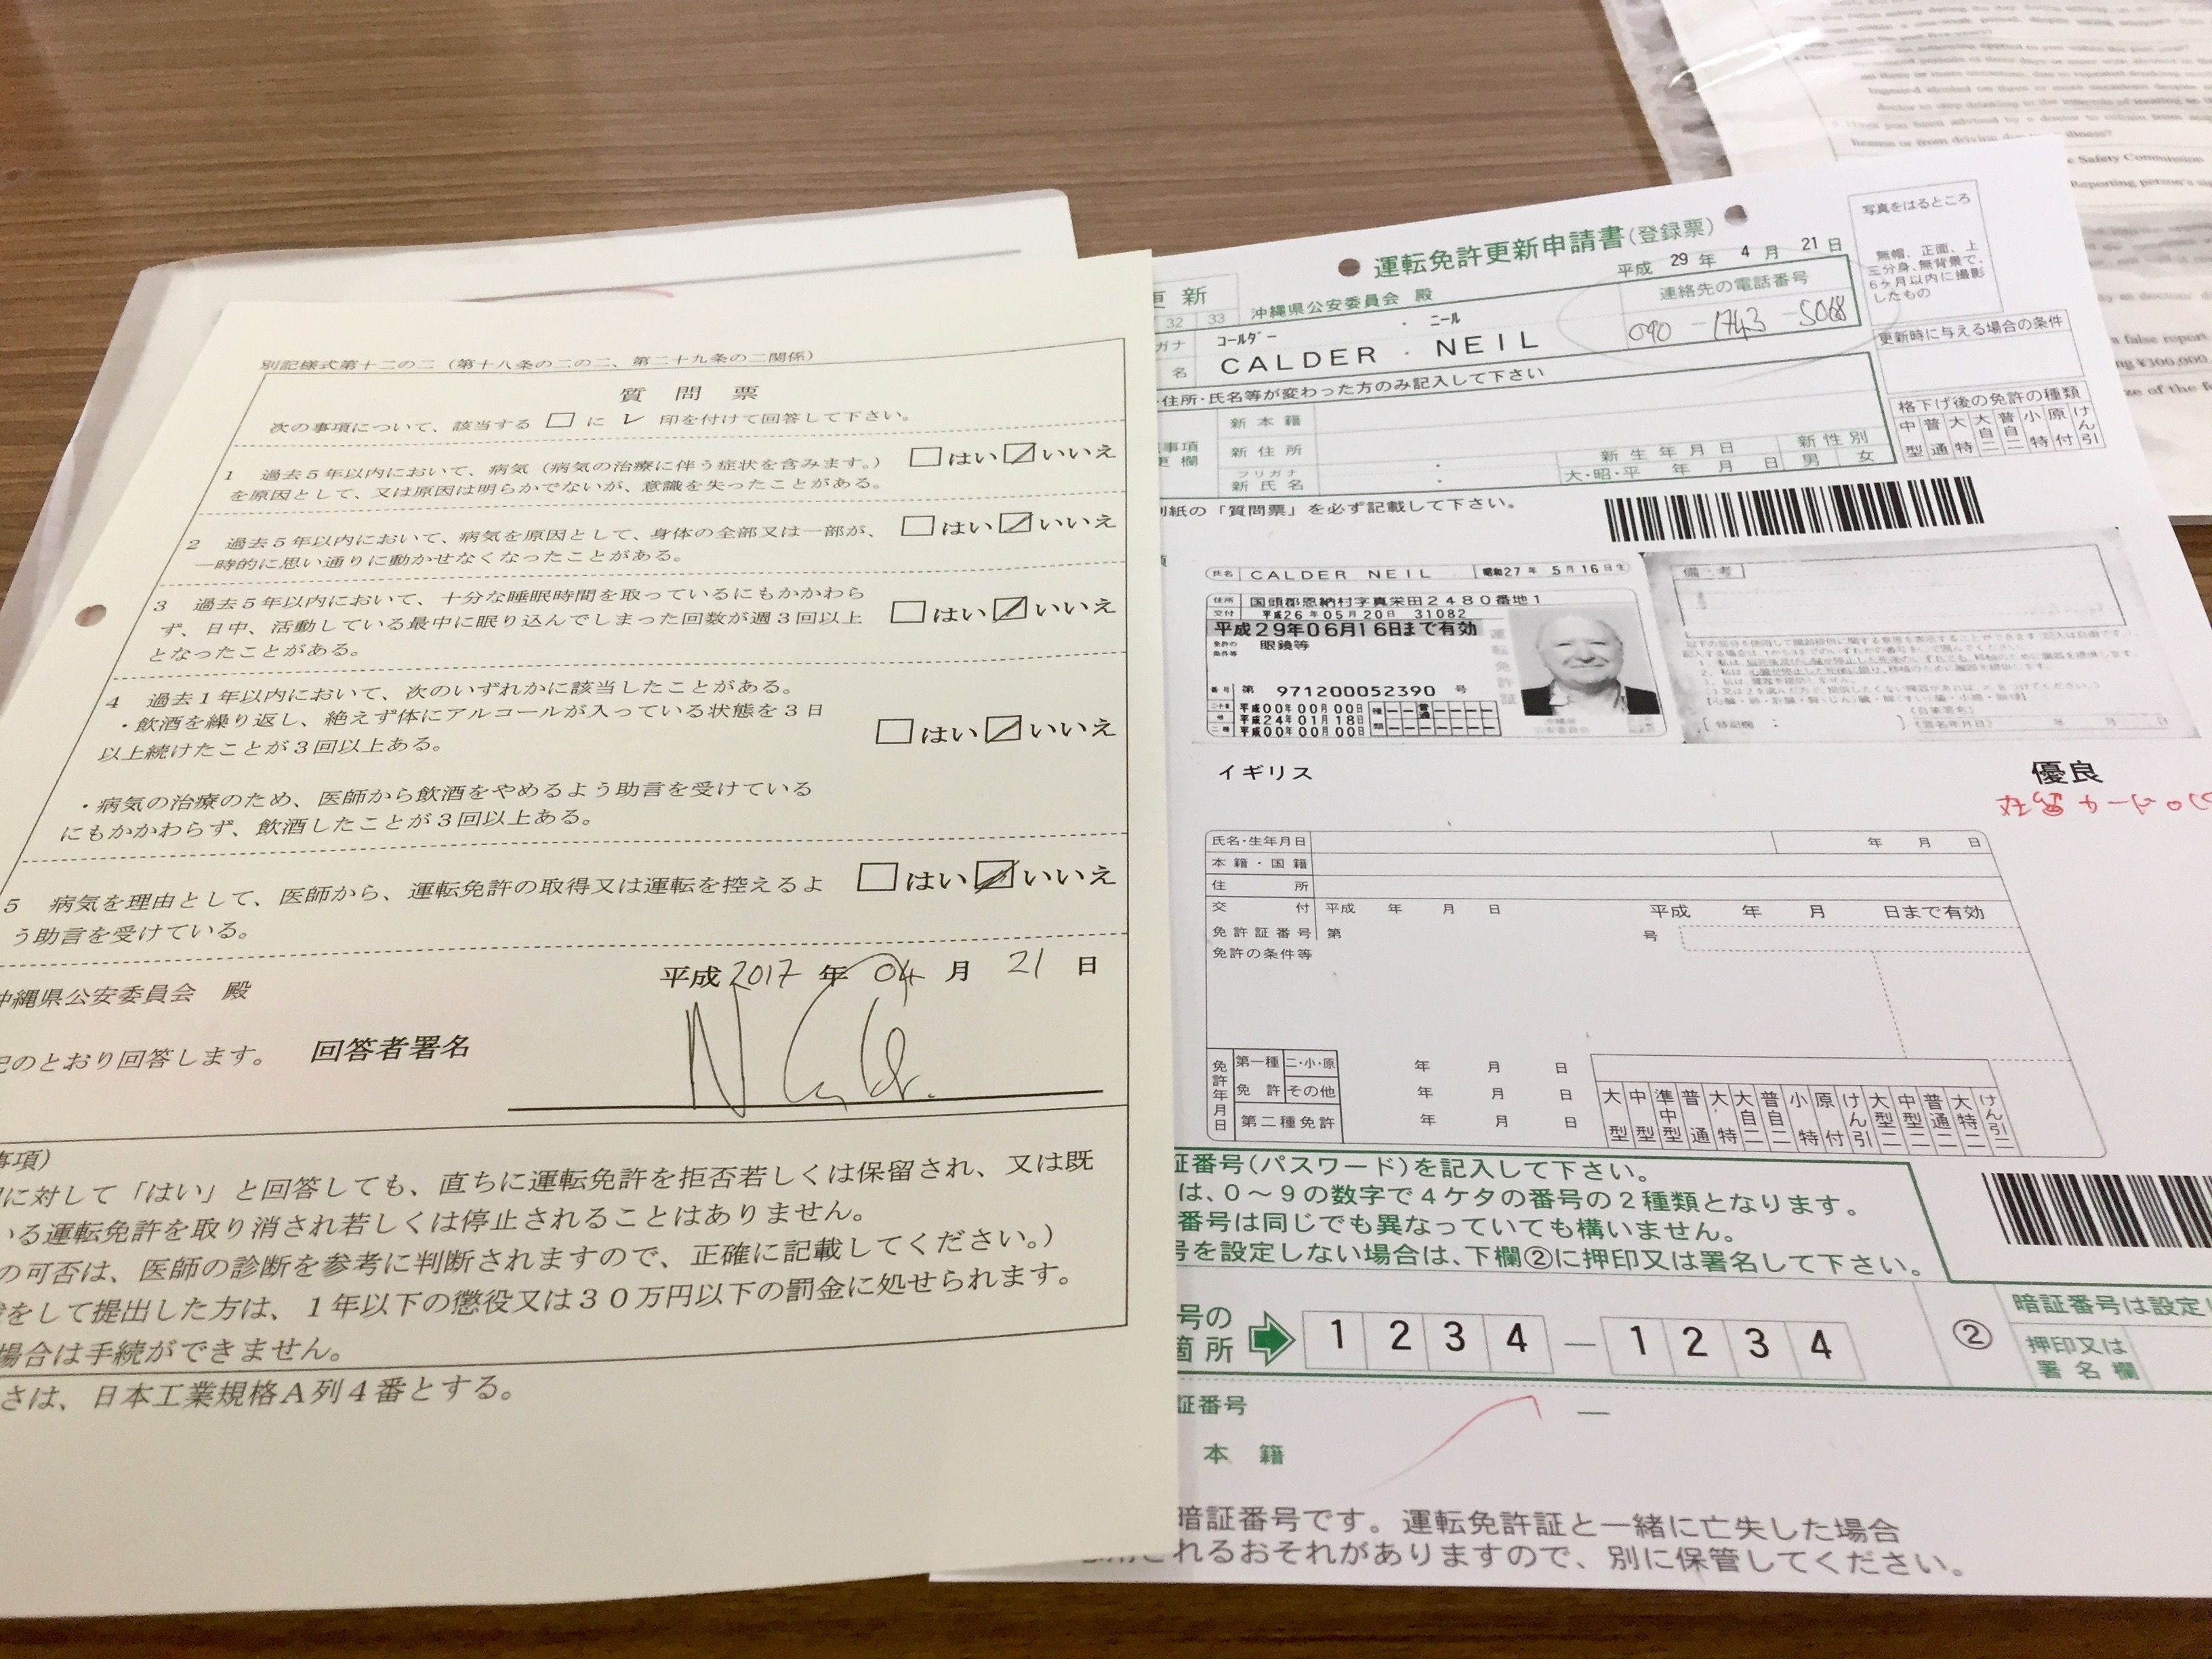 別記様式第十二の二（第十八条の二の二、第二十九条の二関係）
質 問 票
次の事項について、該当する □ に レ 印を付けて回答して下さい。
1 過去５年以内において、病気（病気の治療に伴う症状を含みます。）
を原因として、又は原因は明らかでないが、意識を失ったことがある。
□はい ☑いいえ
2 過去５年以内において、病気を原因として、身体の全部又は一部が、
一時的に思い通りに動かせなくなったことがある。
□はい ☑いいえ
3 過去５年以内において、十分な睡眠時間を取っているにもかかわら
ず、日中、活動している最中に眠り込んでしまった回数が週３回以上
となったことがある。
□はい ☑いいえ
4 過去１年以内において、次のいずれかに該当したことがある。
・飲酒を繰り返し、絶えず体にアルコールが入っている状態を３日
以上続けたことが３回以上ある。
□はい ☑いいえ
・病気の治療のため、医師から飲酒をやめるよう助言を受けている
にもかかわらず、飲酒したことが３回以上ある。
5 病気を理由として、医師から、運転免許の取得又は運転を控えるよ
う助言を受けている。
□はい ☑いいえ
平成 2017 年 04 月 21 日
沖縄県公安委員会 殿
記のとおり回答します。 回答者署名
事項）
に対して「はい」と回答しても、直ちに運転免許を拒否若しくは保留され、又は既
いる運転免許を取り消され若しくは停止されることはありません。
の可否は、医師の診断を参考に判断されますので、正確に記載してください。）
をして提出した方は、１年以下の懲役又は３０万円以下の罰金に処せられます。
場合は手続ができません。
さは、日本工業規格Ａ列４番とする。
運転免許更新申請書(登録票)
平成 29 年 4 月 21 日
更 新
32 33
沖縄県公安委員会 殿
連絡先の電話番号
090 - 1743 - 5068
ガナ コールダー ・ ニール
名 CALDER . NEIL
・住所・氏名等が変わった方のみ記入して下さい
事項
更欄
新 本 籍
新 住 所
フリガナ
新 氏 名
新 生 年 月 日
大・昭・平 年 月 日
新 性 別
男 女
写真をはるところ
無帽、正面、上
三分身、無背景で、
6ヶ月以内に撮影
したもの
更新時に与える場合の条件
格下げ後の免許の種類
中型 普通 大特 大自二 普自二 小特 原付 けん引
紙の「質問票」を必ず記載して下さい。
氏名 CALDER NEIL 昭和27年 5月16日生
住所 国頭郡恩納村字真栄田２４８０番地１
交付 平成26年05月20日 31082
平成29年06月16日まで有効
免許の
条件等
眼鏡等
運転免許証
番号 第 971200052390 号
平成00年00月00日
平成24年01月18日
二種 平成00年00月00日
種類
普通
備 考
イギリス
優良
氏名・生年月日 年 月 日
本 籍 ・ 国 籍
住 所
交 付 平成 年 月 日
平成 年 月 日まで有効
免 許 証 番 号 第 号
免許の条件等
免許年月日
第一種 二・小・原 年 月 日
免 許 その他 年 月 日
第 二 種 免 許 年 月 日
大型 中型 準中型 普通 大特 大自二 普自二 小特 原付 けん引 大型二 中型二 普通二 大特二 けん引二
証番号(パスワード)を記入して下さい。
は、０～９の数字で４ケタの番号の２種類となります。
番号は同じでも異なっていても構いません。
号を設定しない場合は、下欄②に押印又は署名して下さい。
号の
箇 所
1 2 3 4 — 1 2 3 4
②
暗証番号は設定し
押印又は
署 名 欄
証番号 —
本 籍
暗証番号です。運転免許証と一緒に亡失した場合
れるおそれがありますので、別に保管してください。
Safety Commission
Reporting person's
false report
¥300,000